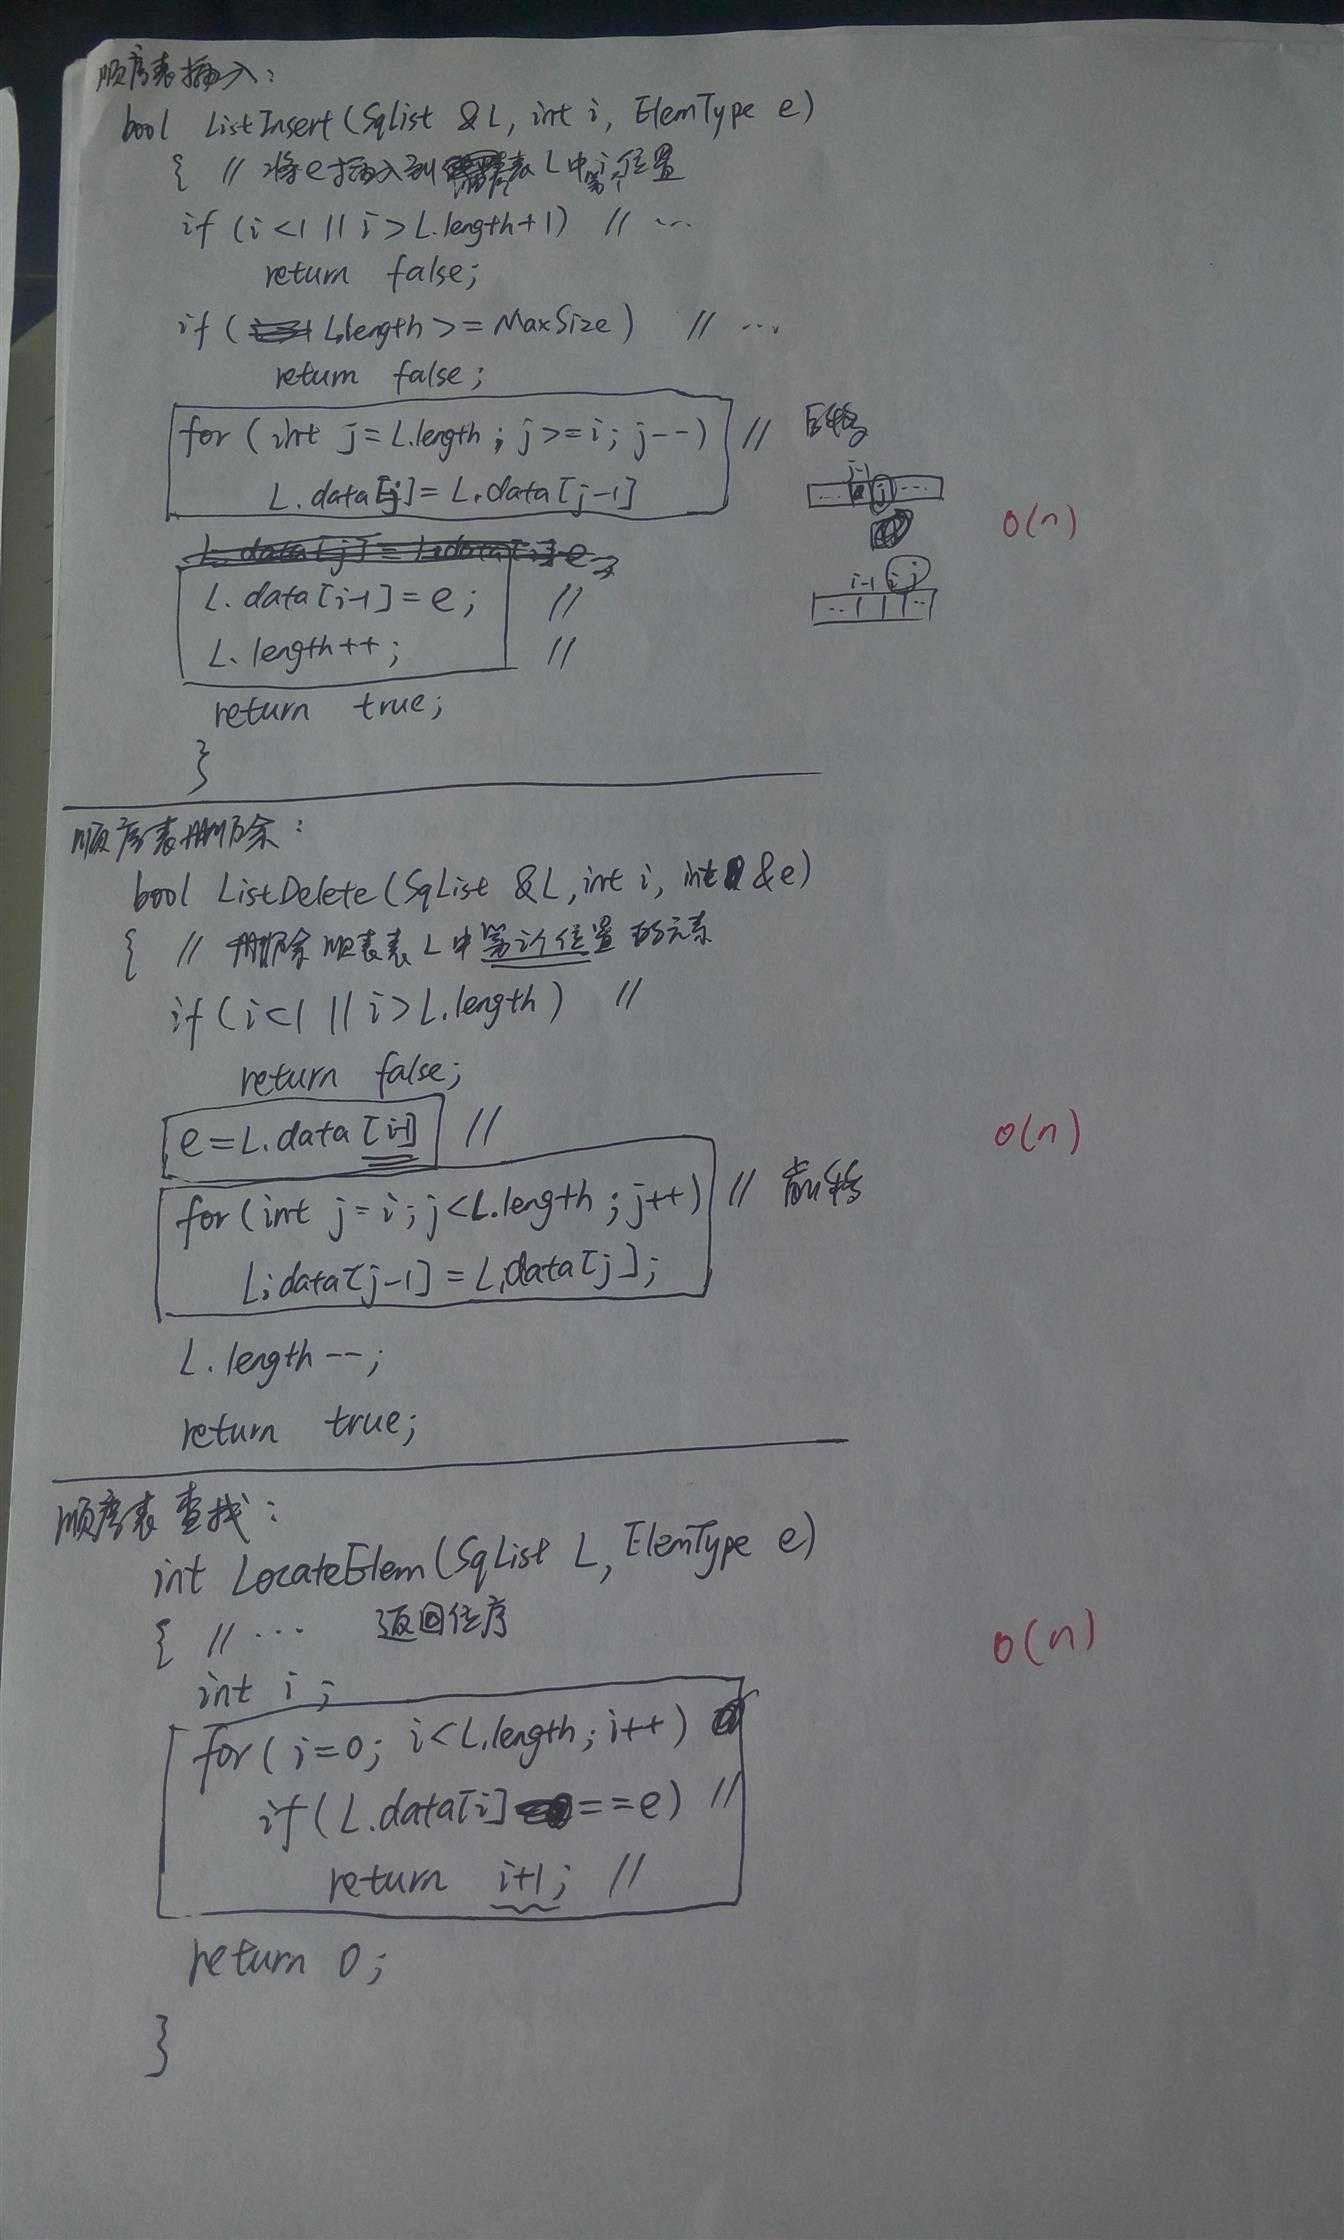 顺序表插入：
bool ListInsert(SqList &L, int i, ElemType e)
{ // 将e插入到表L中第i个位置
if (i<1 || i>L.length+1) // ...
return false;
if (L.length >= MaxSize) // ...
return false;
for (int j=L.length; j>=i; j--) // 后移
L.data[j]=L.data[j-1]
j-1
... j ...
O(n)
L.data[i-1]=e; //
i-1 i j
L.length++; //
return true;
}
顺序表删除：
bool ListDelete(SqList &L, int i, int &e)
{ // 删除顺表表L中第i个位置的元素
if(i<1 || i>L.length) //
return false;
e=L.data[i-1] //
O(n)
for(int j=i; j<L.length; j++) // 前移
L.data[j-1]=L.data[j];
L.length--;
return true;
顺序表查找：
int LocateElem(SqList L, ElemType e)
{ // ... 返回位序
O(n)
int i;
for(i=0; i<L.length; i++)
if(L.data[i]==e) //
return i+1; //
return 0;
}